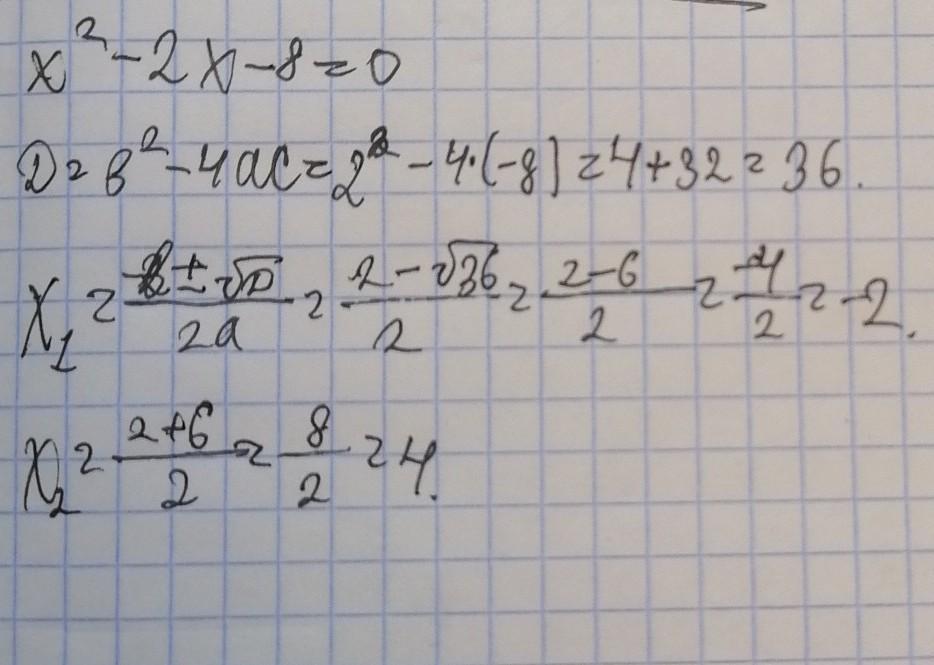 x² - 2x - 8 = 0
D = b² - 4ac = 2² - 4·(-8) = 4 + 32 = 36.
x₁ = (-b ± √D)/2a = (2 - √36)/2 = (2 - 6)/2 = -4/2 = -2.
x₂ = (2 + 6)/2 = 8/2 = 4.